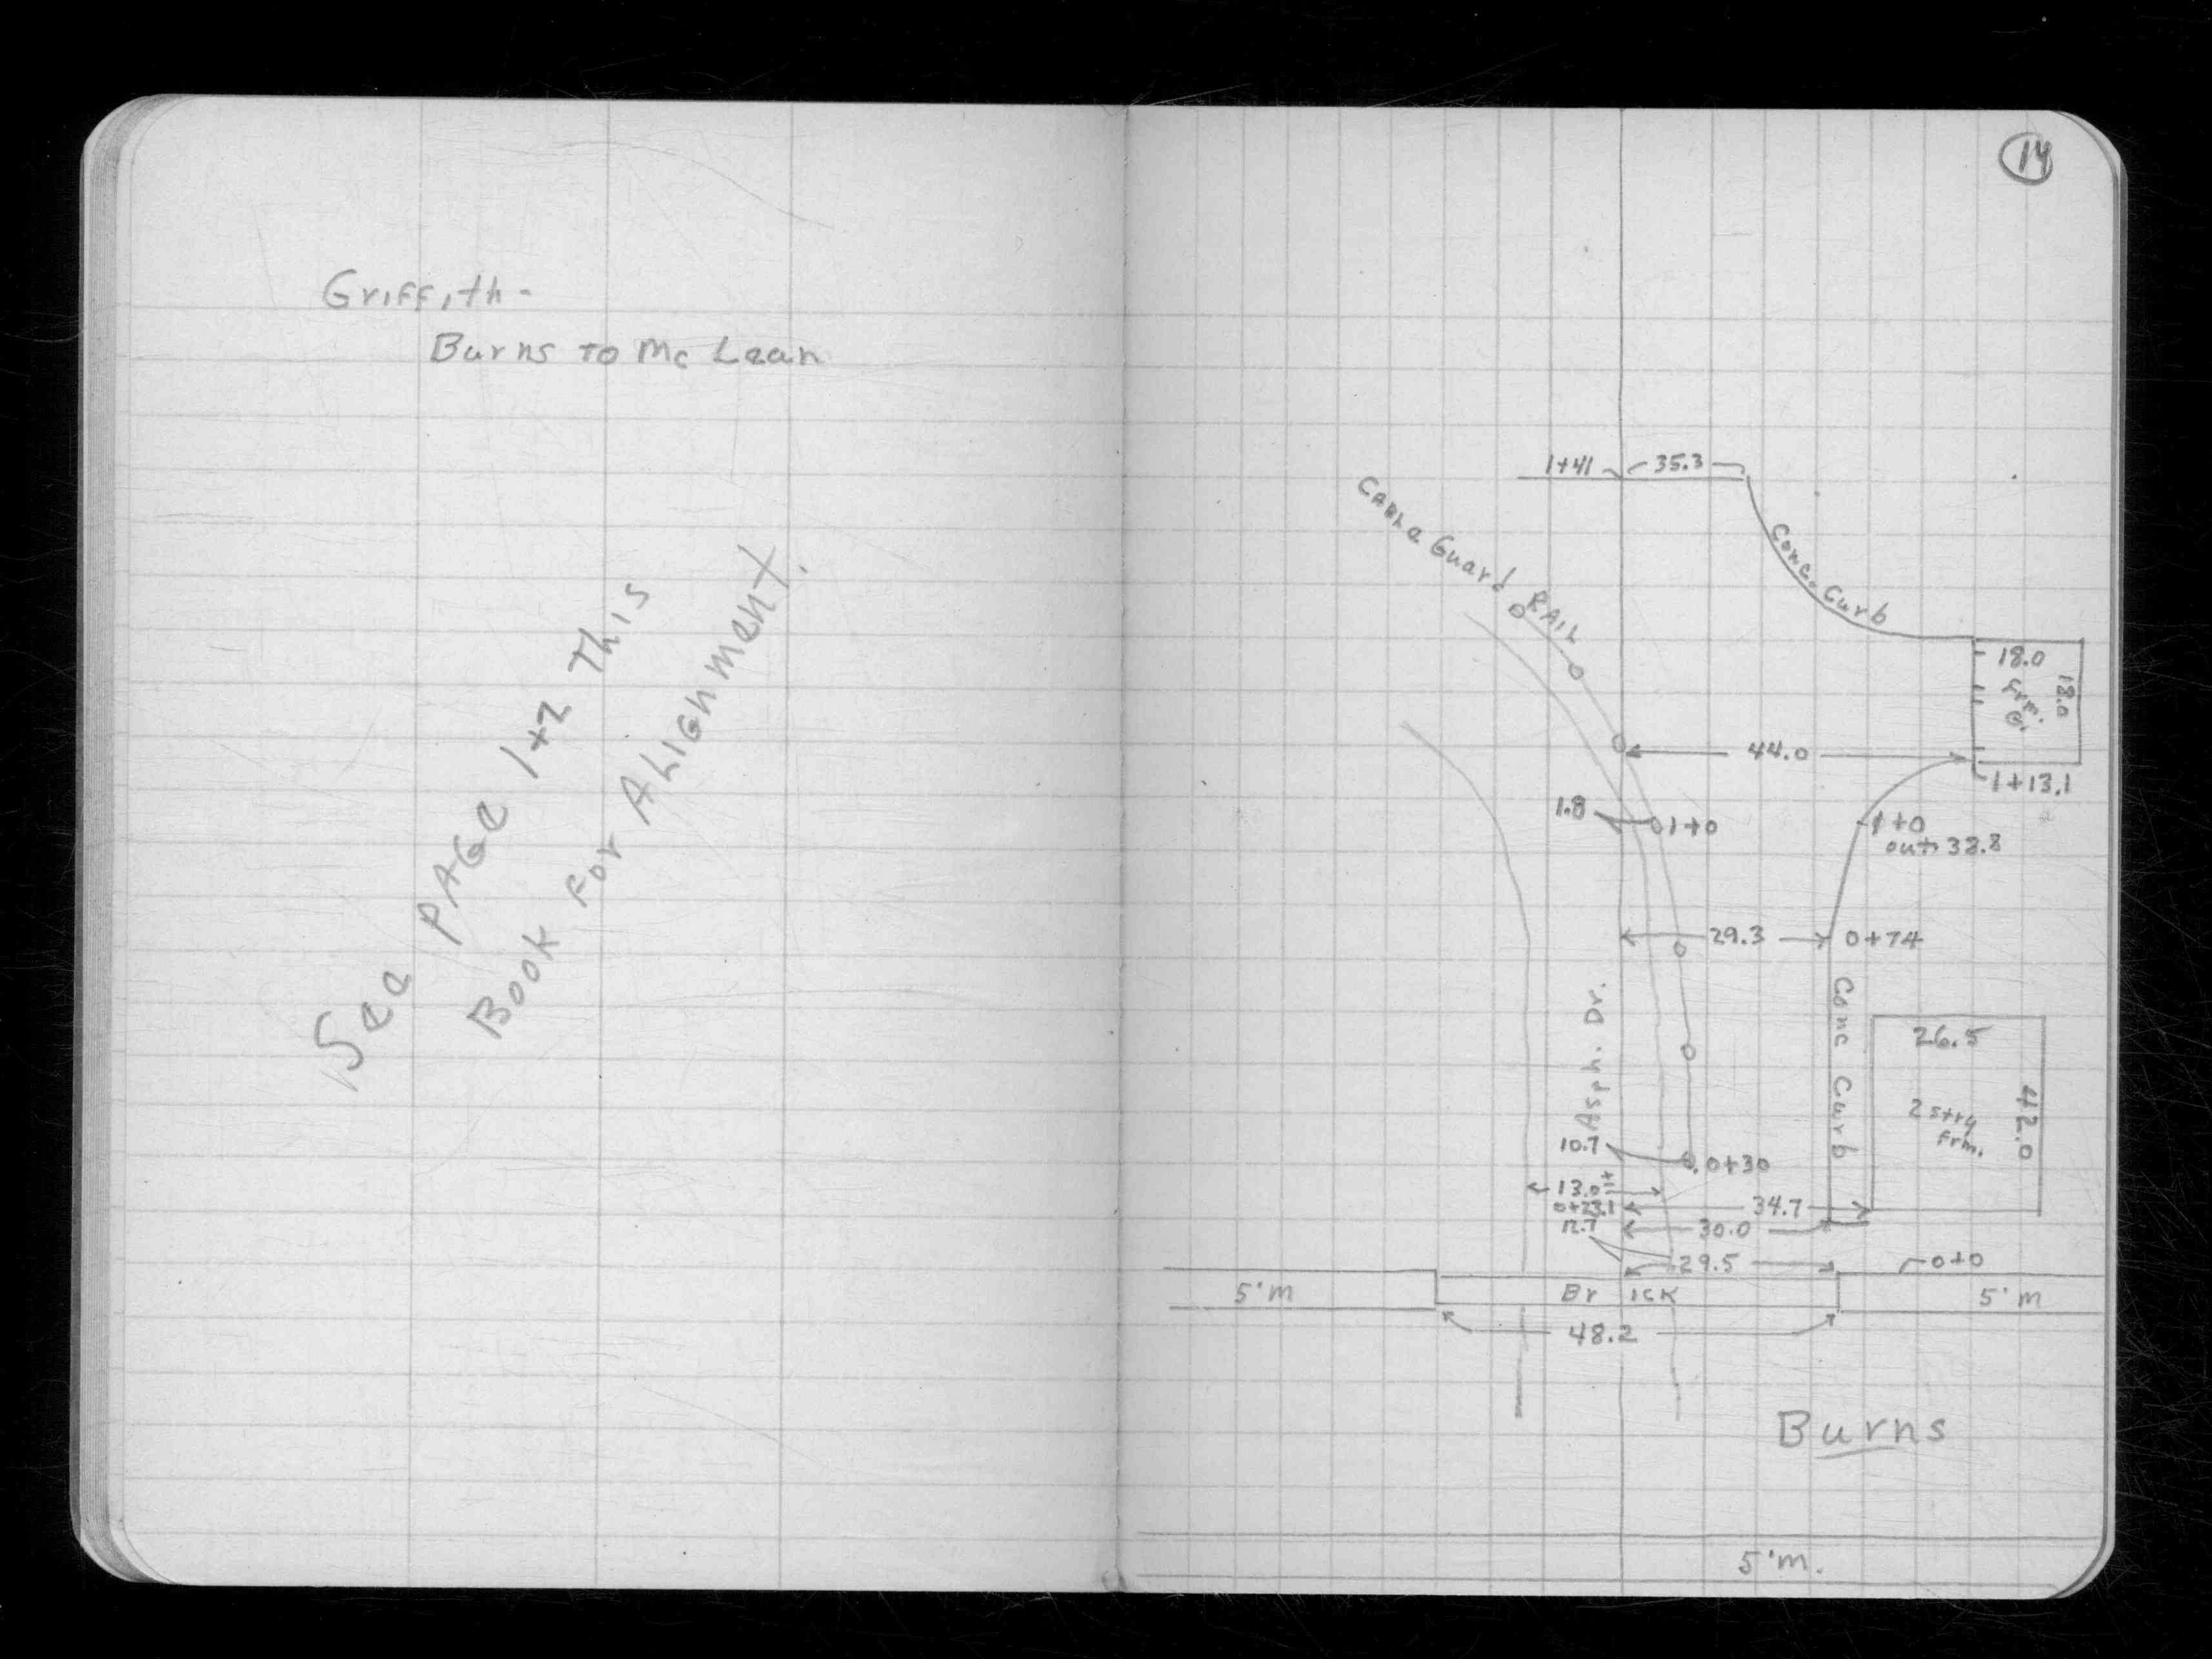 Griffith -
Burns to Mc Lean
See PAGe 1+2 This
Book For ALIGnment.
14
1+41 35.3
CABLe Guard RAIL
Conc. Curb
18.0
18.0
frm.
G.
44.0
1+13.1
1.8
1+0
1+0
out 33.8
29.3 0+74
Asph. Dr.
Conc Curb
26.5
42.0
2 stry
Frm.
10.7
0+30
13.0±
0+23.1 34.7
12.7 30.0
29.5 0+0
5'm Brick 5'm
48.2
Burns
5'm.